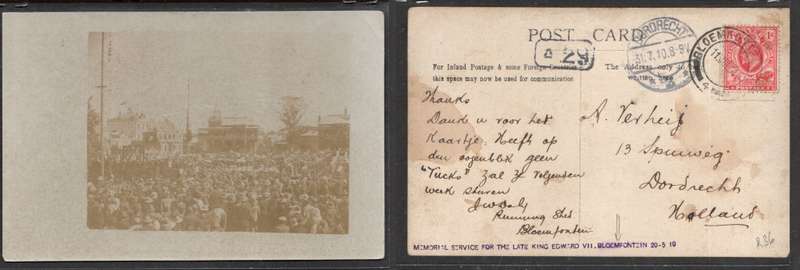 POST CARD
For Inland Postage & some Foreign Countries
this space may now be used for communication
The Address only
A 29
DORDRECHT
31.7.10.8-9V
BLOEMFONTEIN
POSTAGE
Thanks
Dank u voor het
kaartje. Heeft op
dien oogenblik geen
"Tucks" Zal ze volgenden
week sturen
Running Shed
Bloemfontein
A. Verheij
13 Spuiweg
Dordrecht
Holland
MEMORIAL SERVICE FOR THE LATE KING EDWARD VII. BLOEMFONTEIN 20-5-10
R36